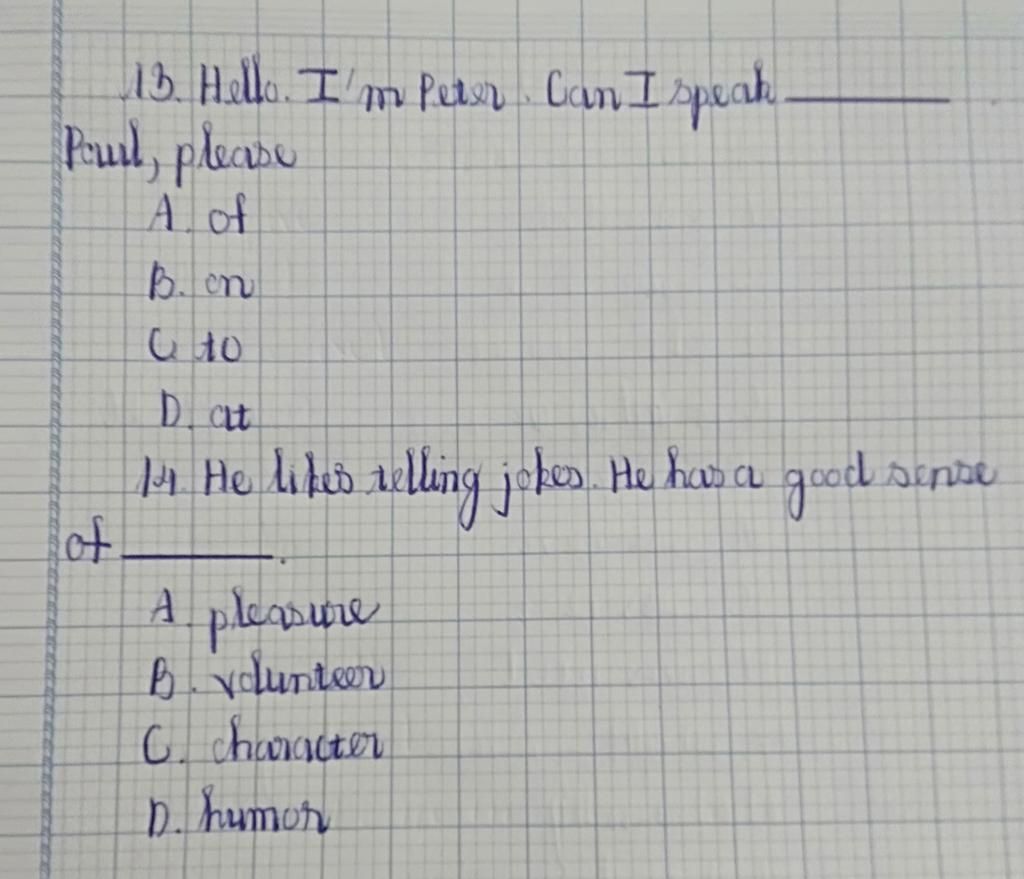 13. Hello. I'm Peter. Can I speak ________
Paul, please
A. of
B. on
C. to
D. at
14. He likes telling jokes. He has a good sense
of ________.
A. pleasure
B. volunteer
C. character
D. humor